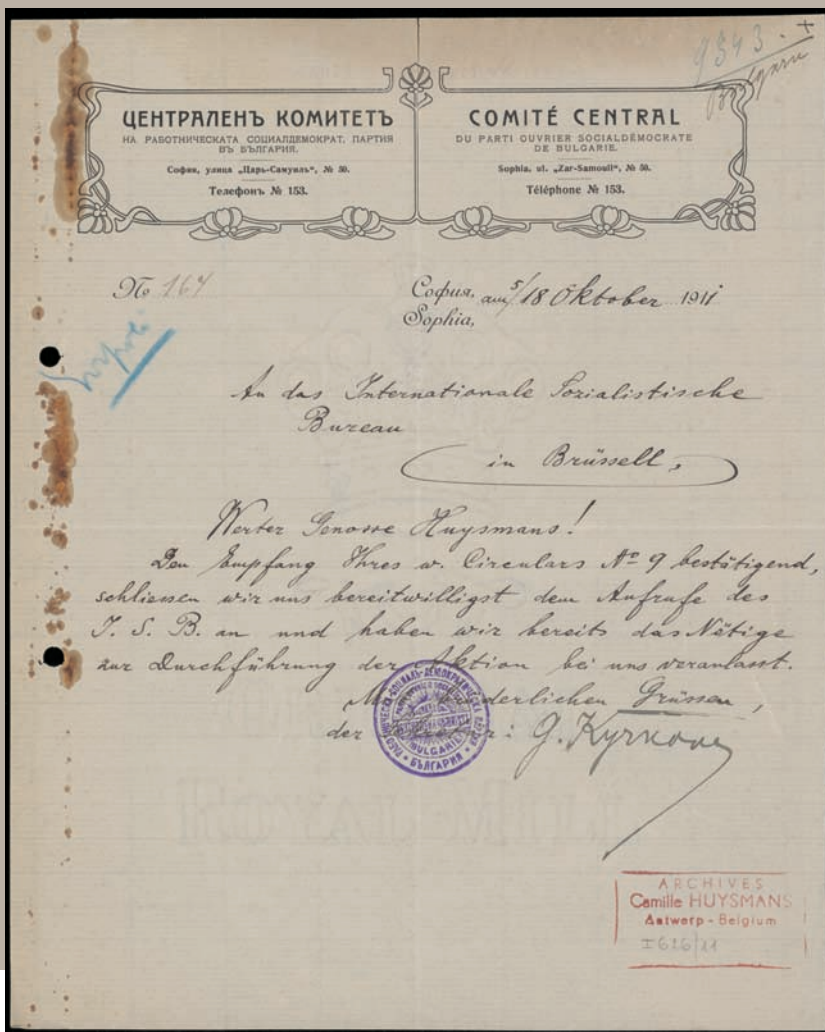 9343. +
Bulgarie
ЦЕНТРАЛЕНЪ КОМИТЕТЪ
НА РАБОТНИЧЕСКАТА СОЦИАЛДЕМОКРАТ. ПАРТИЯ
ВЪ БЪЛГАРИЯ.
София, улица „Царь-Самуилъ“, № 50.
Телефонъ № 153.
COMITÉ CENTRAL
DU PARTI OUVRIER SOCIALDÉMOCRATE
DE BULGARIE.
Sophia, ul. „Zar-Samouil“, № 50.
Téléphone № 153.
№ 164
София,
Sophia,
am 5/18 Oktober 1911
An das Internationale Sozialistische
Bureau
in Brüssell,
Werter Genosse Huysmans!
Den Empfang Ihres w. Circulars Nº 9 bestätigend,
schliessen wir uns bereitwilligst dem Aufrufe des
I. S. B. an und haben wir bereits das Nötige
zur Durchführung der Aktion bei uns veranlasst.
Mit brüderlichen Grüssen,
der Sekretär: G. Kyrkow
БЪЛГАРИЯ
ARCHIVES
Camille HUYSMANS
Antwerp - Belgium
I 626/11